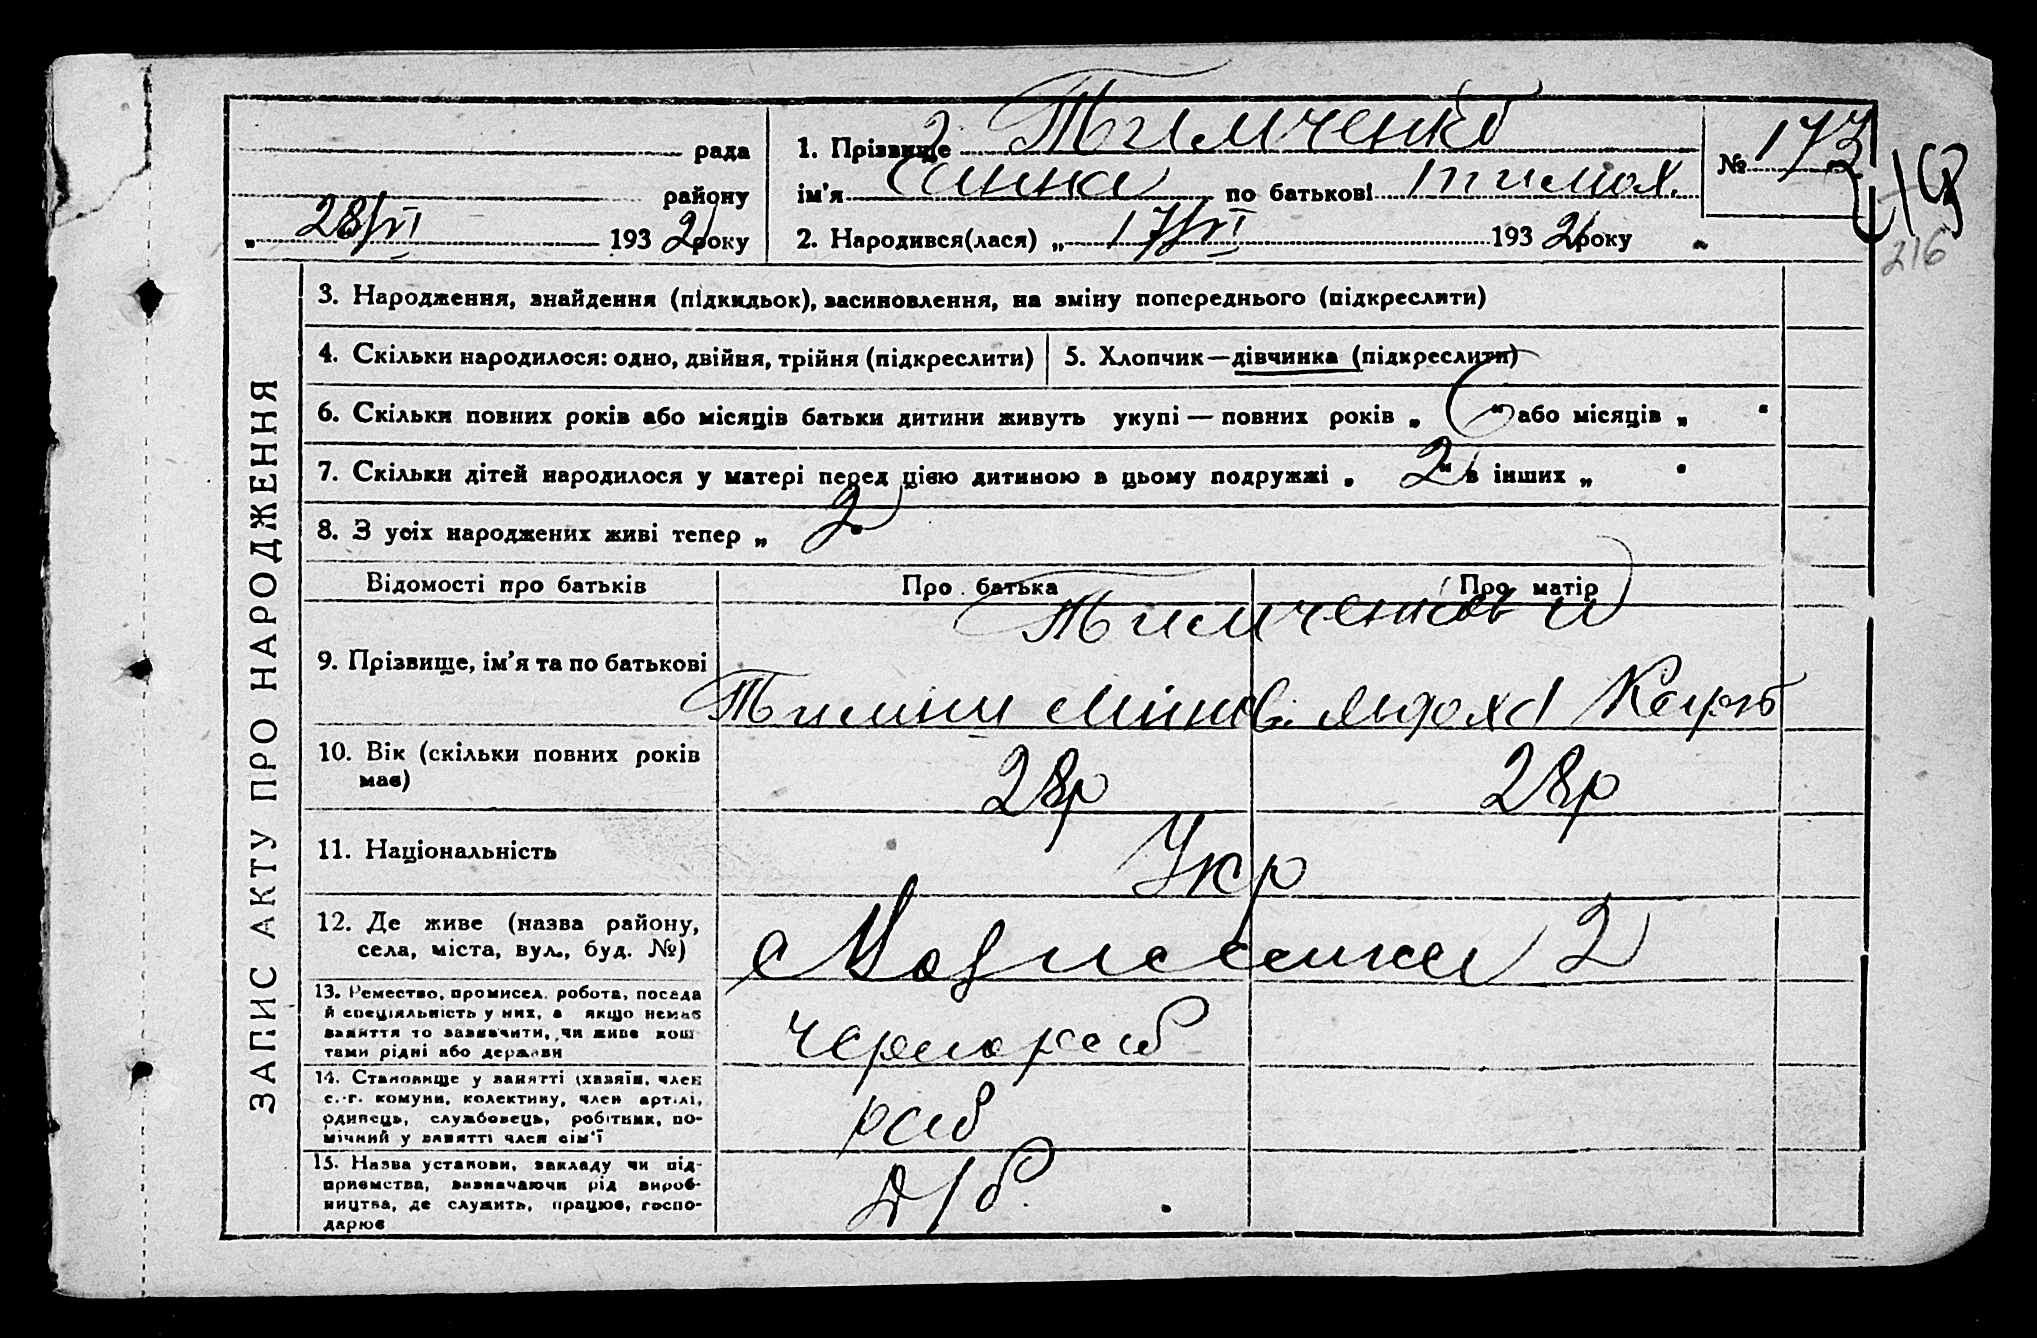 рада
району
„ 28/VI 1932 року
1. Прізвище Тимченко
ім'я Ганна по батькові Тимох.
2. Народився(лася) „ 17/VI 1932 року
№ 173
216
ЗАПИС АКТУ ПРО НАРОДЖЕННЯ
3. Народження, знайдення (підкидьок), засиновлення, на зміну попереднього (підкреслити)
4. Скільки народилося: одно, двійня, трійня (підкреслити)
5. Хлопчик—дівчинка (підкреслити)
6. Скільки повних років або місяців батьки дитини живуть укупі — повних років „ “ або місяців „
7. Скільки дітей народилося у матері перед цією дитиною в цьому подружжі „ 2 “ в інших „
8. З усіх народжених живі тепер „ 2
Відомості про батьків
Про батька
Про матір
9. Прізвище, ім'я та по батькові
10. Вік (скільки повних років
має)
28р 28р
11. Національність
Укр
12. Де живе (назва району,
села, міста, вул., буд. №)
2
13. Ремество, промисел, робота, посада
й спеціяльність у них, а якщо немає
заняття то зазначити, чи живе кош
тами рідні або держави
чернораб
14. Становище у занятті (хазяїн, член
с.-г. комуни, колективу, член артілі,
одинець, службовець, робітник, по-
мічний у занятті член сім'ї
раб
15. Назва установи, закладу чи під-
приємства, визначаючи рід вироб-
ництва, де служить, працює, госпо-
дарює